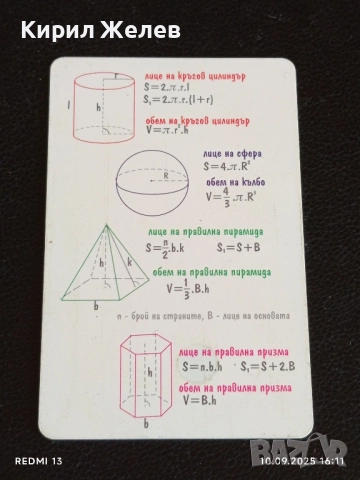 Кирил Желев
r
лице на кръгов цилиндър
S=2.π.r.l
S₁=2.π.r.(l+r)
l
h
обем на кръгов цилиндър
V=π.r².h
лице на сфера
S=4.π.R²
R
обем на кълбо
V=4/3.π.R³
лице на правилна пирамида
S=n/2.b.k S₁=S+B
h
k
обем на правилна пирамида
V=1/3.B.h
b
n - брой на страните, B - лице на основата
лице на правилна призма
h
S=n.b.h S₁=S+2.B
обем на правилна призма
V=B.h
b
БАЗАР
REDMI 13
10.09.2025 16:11